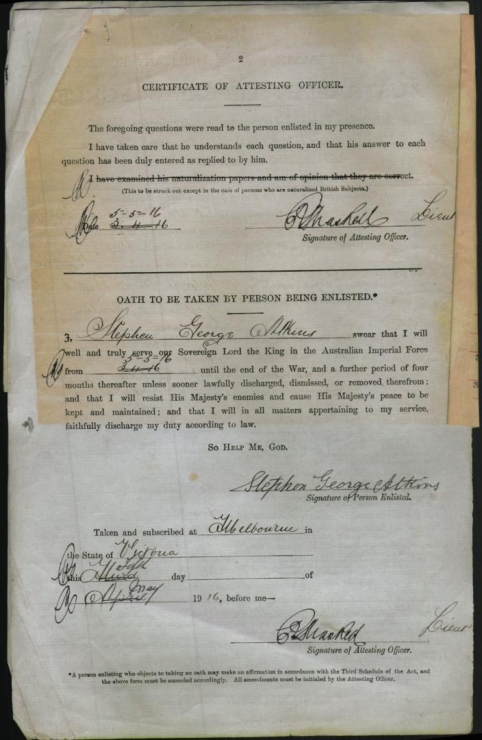 2
CERTIFICATE OF ATTESTING OFFICER.
The foregoing questions were read to the person enlisted in my presence.
I have taken care that he understands each question, and that his answer to each
question has been duly entered as replied to by him.
I have examined his naturalization papers and am of opinion that they are correct.
(This to be struck out except in the case of persons who are naturalized British Subjects.)
5-5-16
3-4-16
Lieut
Signature of Attesting Officer.
OATH TO BE TAKEN BY PERSON BEING ENLISTED.*
3, Stephen George Atkins swear that I will
well and truly serve our Sovereign Lord the King in the Australian Imperial Force
5-5-16
from 3-4-16 until the end of the War, and a further period of four
months thereafter unless sooner lawfully discharged, dismissed, or removed, therefrom;
and that I will resist His Majesty's enemies and cause His Majesty's peace to be
kept and maintained; and that I will in all matters appertaining to my service,
faithfully discharge my duty according to law.
SO HELP ME, GOD.
Stephen George Atkins
Signature of Person Enlisted.
Taken and subscribed at Melbourne in
the State of Victoria
this day of
May
April 1916, before me—
Lieut
Signature of Attesting Officer.
*A person enlisting who objects to taking an oath may make an affirmation in accordance with the Third Schedule of the Act, and
the above form must be amended accordingly. All amendments must be initialed by the Attesting Officer.